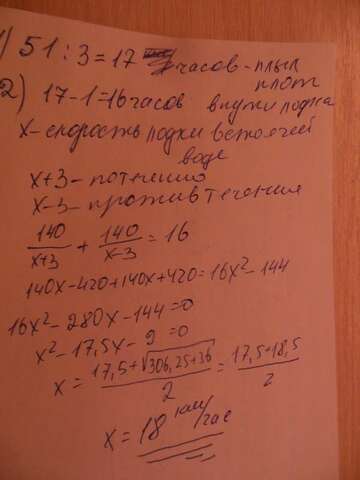 1) 51:3=17 часов - плыл плот
2) 17-1=16 часов в пути лодка
x - скорость лодки в стоячей воде
x+3 - по течению
x-3 - против течения
140/x+3 + 140/x-3 = 16
140x-420+140x+420=16x²-144
16x²-280x-144=0
x²-17,5x-9=0
x= 17,5+√306,25+36/2 = 17,5+18,5/2
x=18 км/час